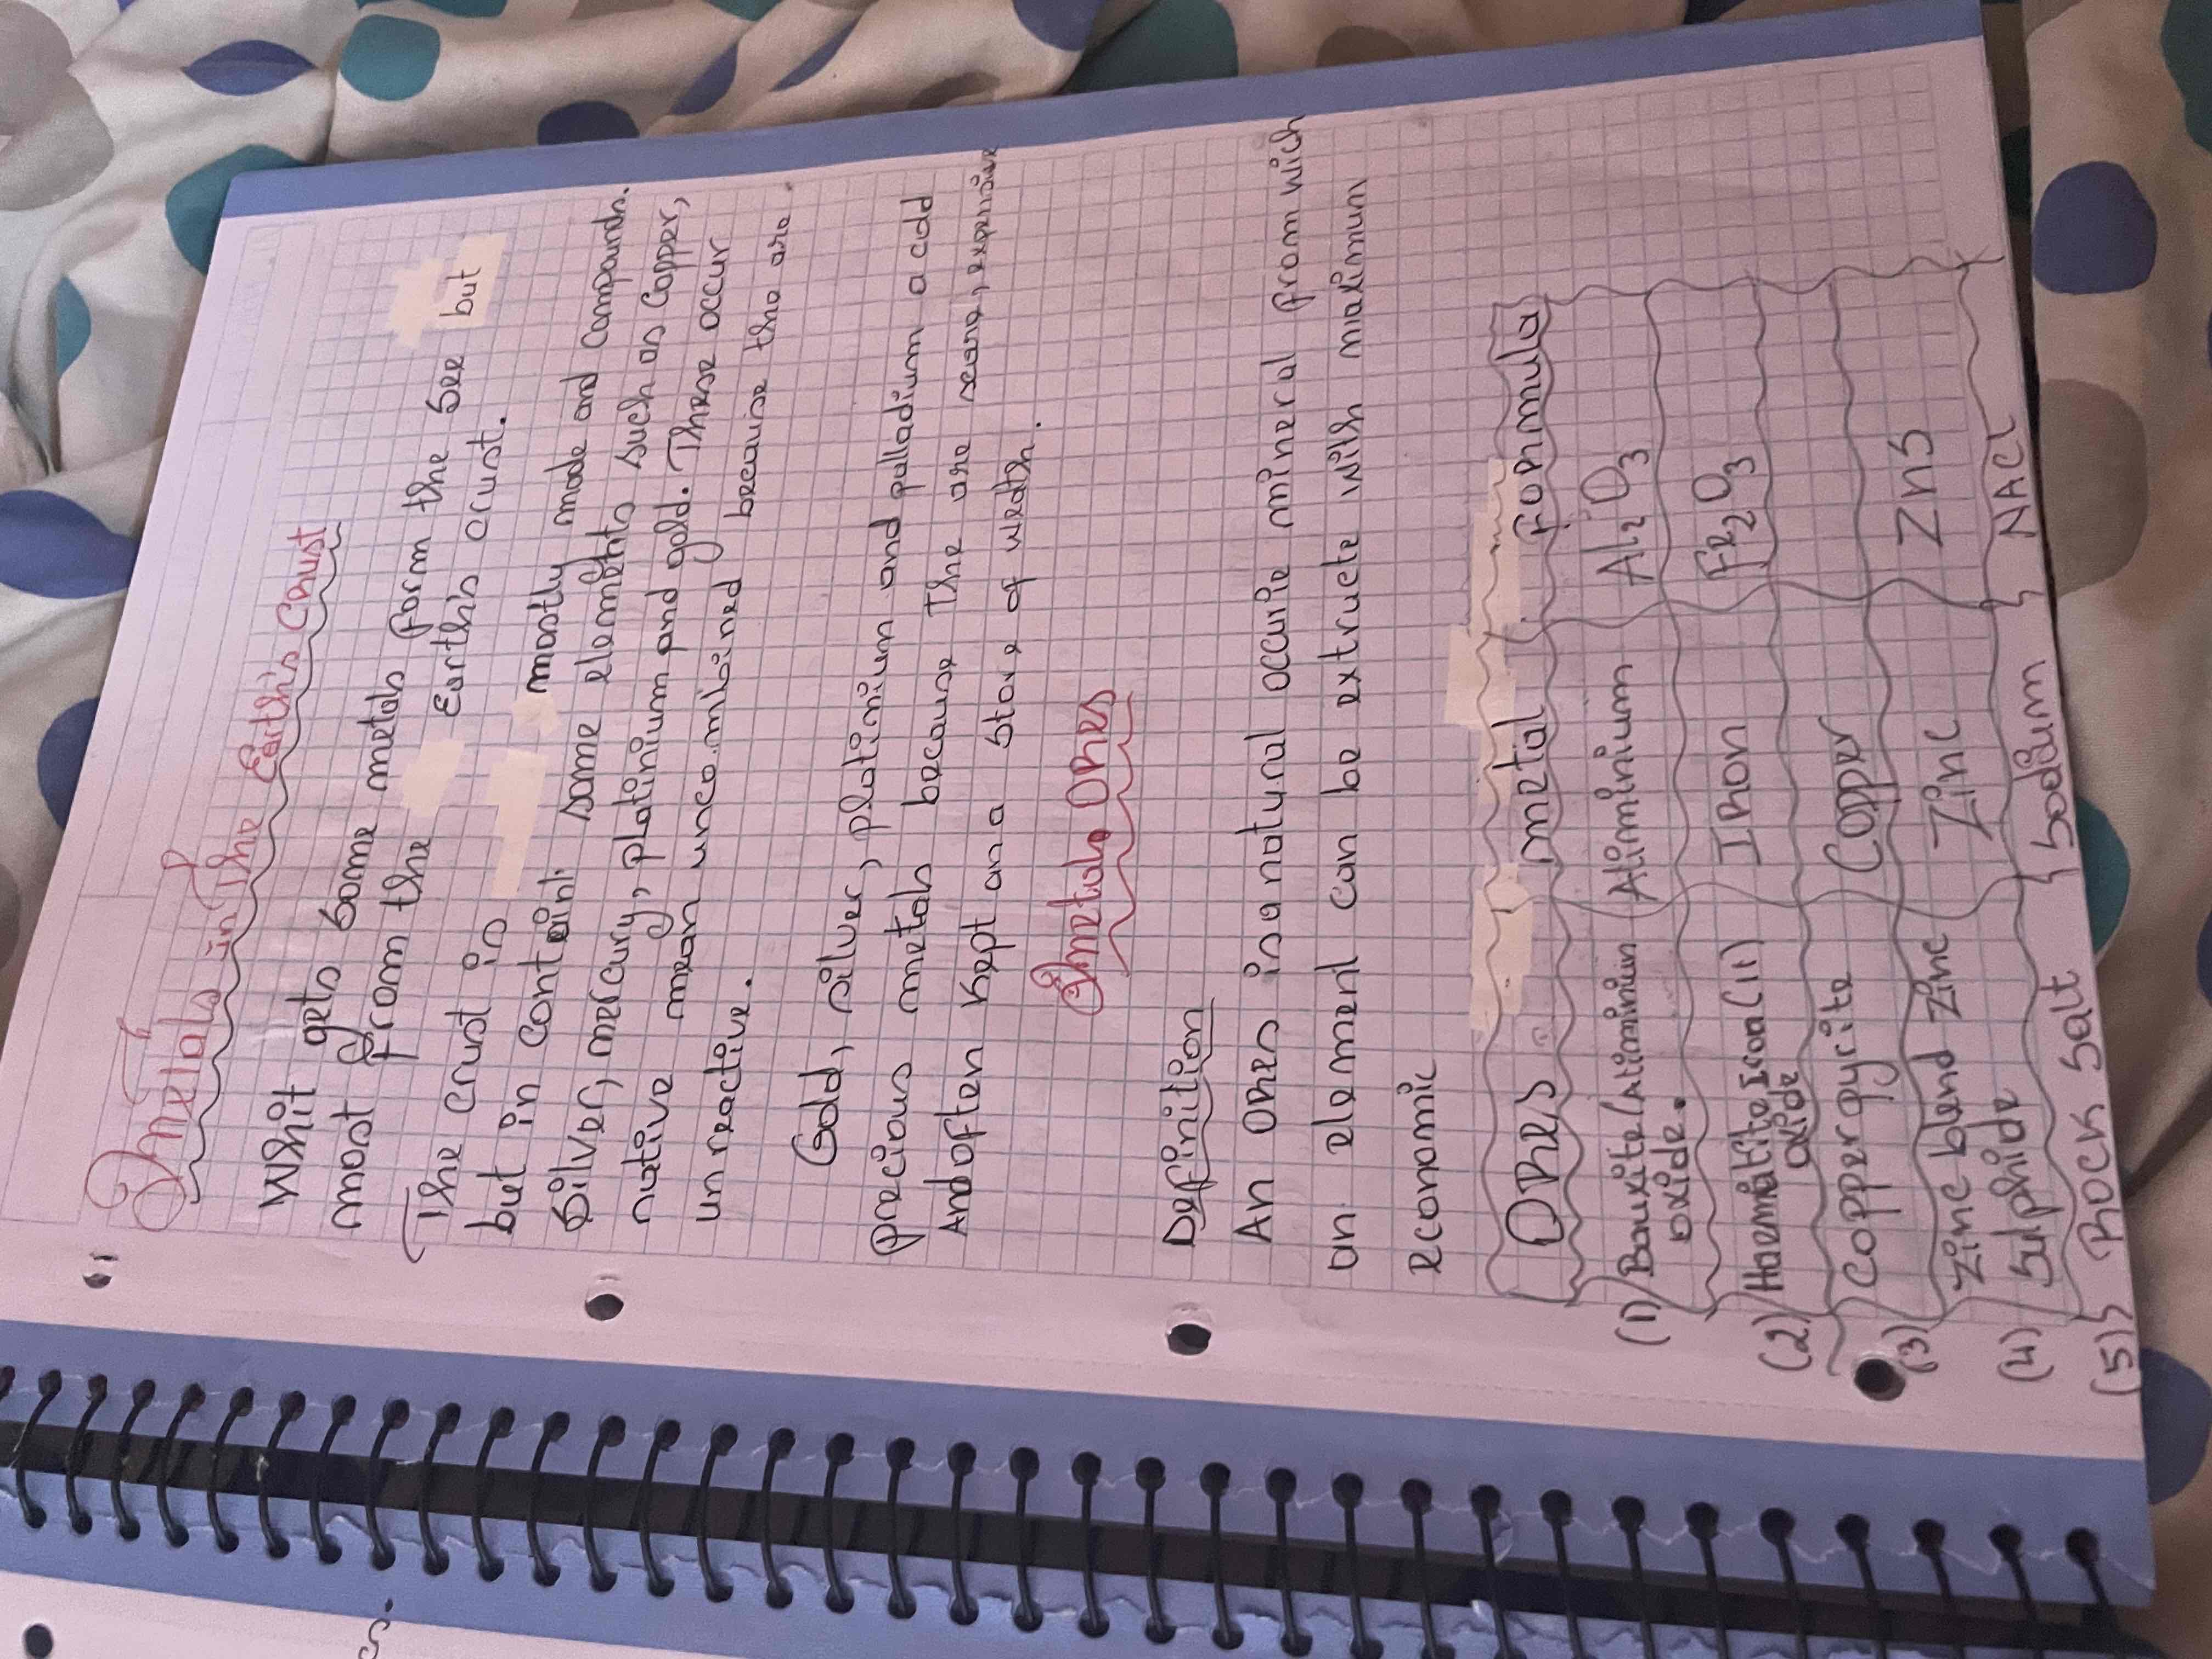 Metals in The Earth's Crust
Whit gets some metals form the See but
most from the Earth's crust.
The crust is mostly made and compounds.
but in contain some elements such as Copper,
Silver, mercury, platinium and gold. These occur
native mean uncombined because the are
unreactive.
Gold, silver, platinium and palladium a cold
precious metals because The are expensive
And often Kept as a store of
Metals ORes
Definition
An ORes is a natural occurie mineral from wich
an element can be extructe with maximum
economic
ORes metal Formula
(1) Bauxite (Aliminium Aliminium Al2O3
oxide.
(2) Haematite Iron (II) IRon Fe2O3
oxide
(3) Copper pyrite Copper
Zinc blend Zinc Zinc ZnS
(4) Sulphide
(5) Rock Salt Sodium NACl